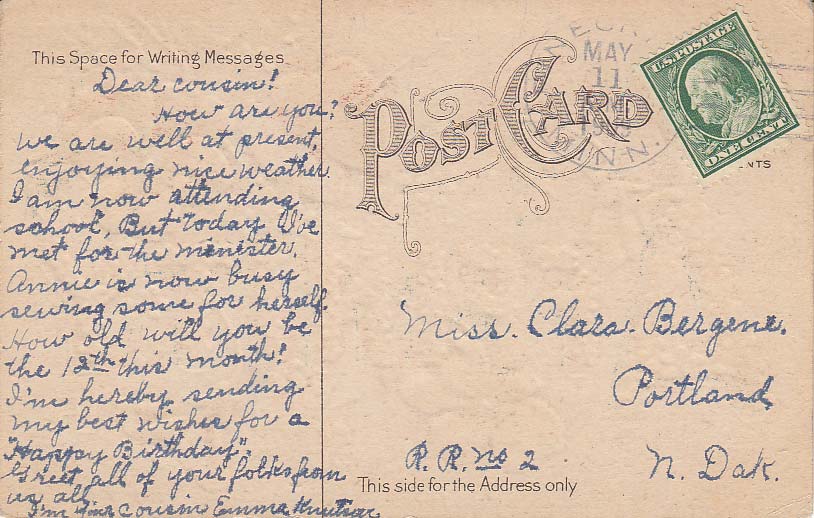 This Space for Writing Messages
Dear cousin!
How are you?
We are well at present,
enjoying nice weather.
I am now attending
school, But today I've
met for the minester.
Annie is now busy
sewing some for herself.
How old will you be
the 12th this month!
I'm hereby sending
my best wishes for a
"Happy Birthday".
Greet all of your folks from
us all.
I'm your cousin Emma
POST CARD
MAY
11
MINN.
U.S. POSTAGE
ONE CENT
NTS
Miss. Clara. Bergene.
Portland,
R. R. no 2
N. Dak.
This side for the Address only